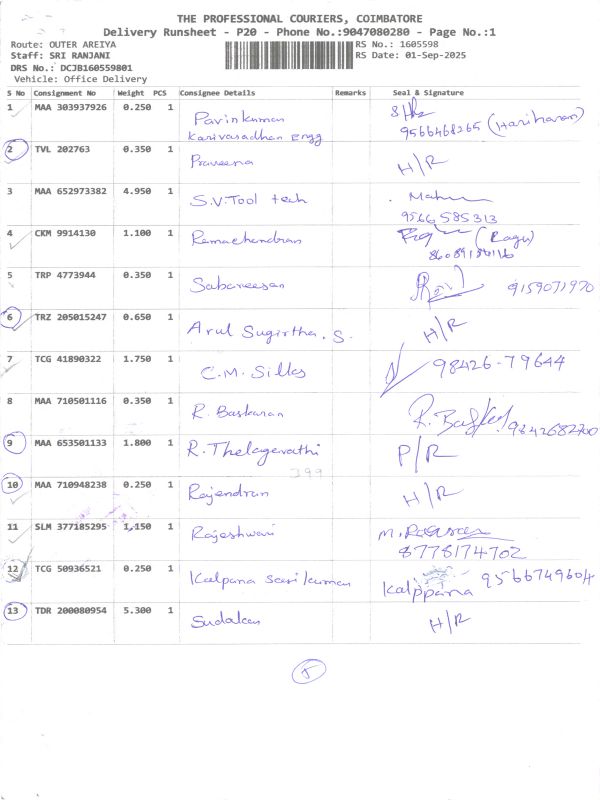 THE PROFESSIONAL COURIERS, COIMBATORE
Delivery Runsheet - P20 - Phone No.:9047080280 - Page No.:1
Route: OUTER AREIYA RS No.: 1605598
Staff: SRI RANJANI RS Date: 01-Sep-2025
DRS No.: DCJB160559801
Vehicle: Office Delivery
S No Consignment No Weight PCS Consignee Details Remarks Seal & Signature
1 MAA 303937926 0.250 1 Pavinkumar
Karivasadhan Engg 9566468265 (Hariharan)
2 TVL 202763 0.350 1 Praveena H/R
3 MAA 652973382 4.950 1 S.V.Tool tech
9566585313
4 CKM 9914130 1.100 1 Ramachandran (Ragu)
5 TRP 4773944 0.350 1 Sabareesan 9159071970
6 TRZ 205015247 0.650 1 Arul Sugirtha. S. H/R
7 TCG 41890322 1.750 1 C.M. Silks 98426-79644
8 MAA 710501116 0.350 1 R. Baskaran 9842682700
9 MAA 653501133 1.800 1 R. Thelagavathi P/R
399
10 MAA 710948238 0.250 1 Rajendran H/R
11 SLM 377185295 1.150 1 Rajeshwari
8778174702
12 TCG 50936521 0.250 1 Kalpana sasikumar Kalppana 9566749604
13 TDR 200080954 5.300 1 Sudakar H/R
5